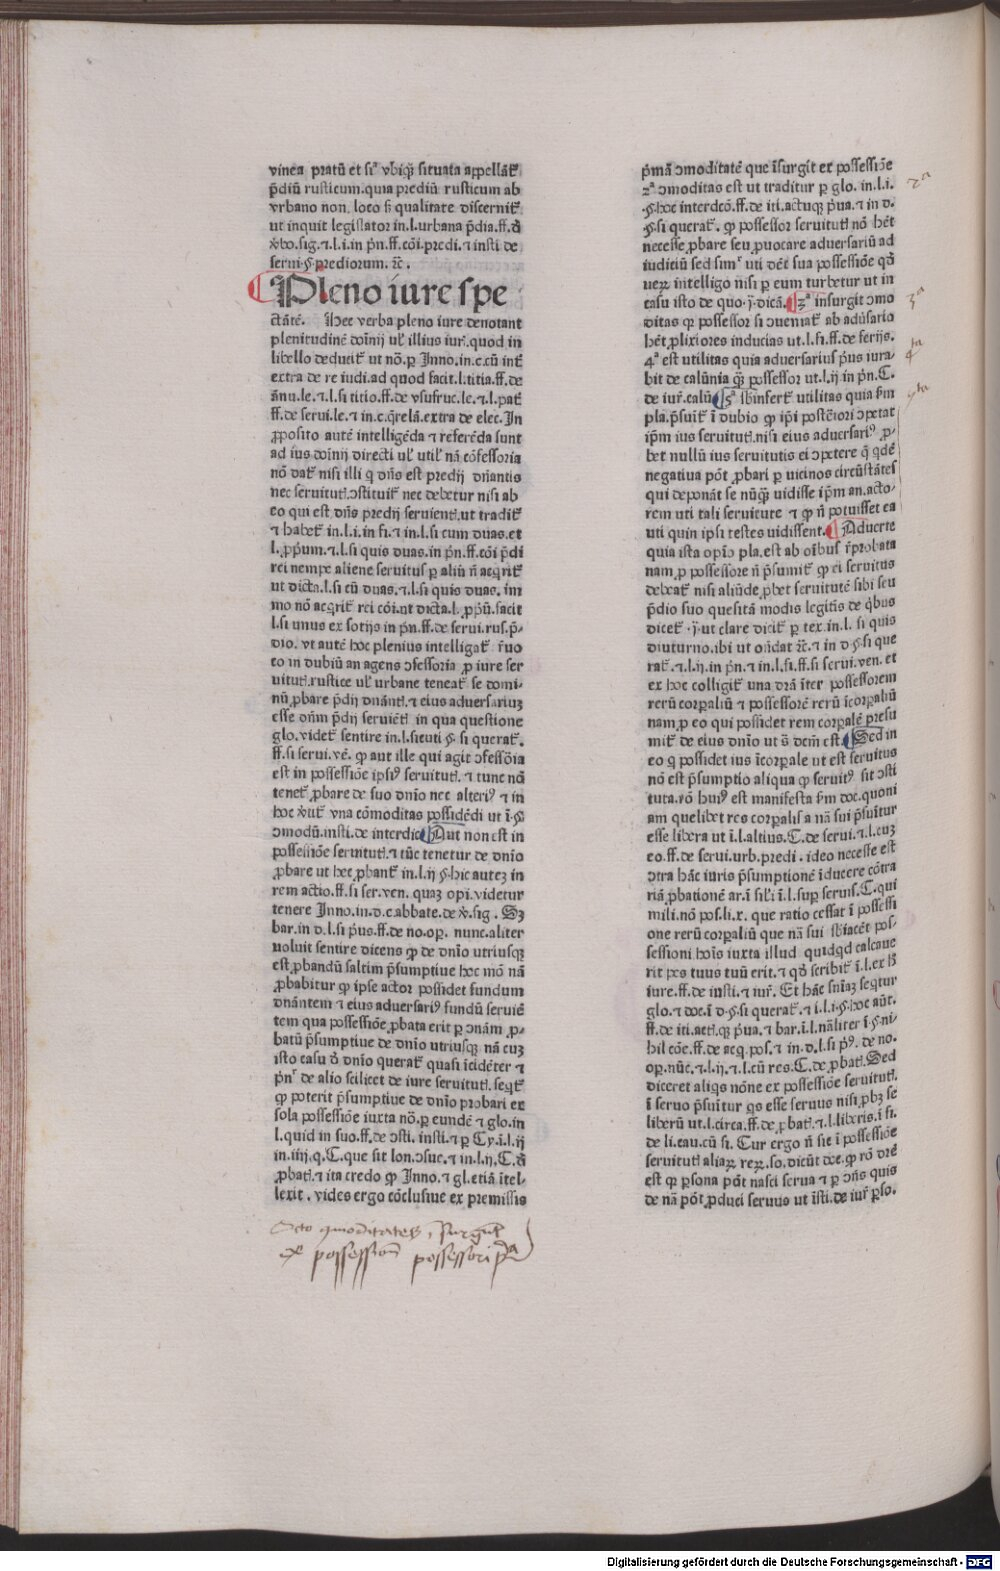 vinea pratū et siᵃ vbiqꝫ situata appellāt᷑
p̄diū rusticum.quia prediū rusticum ab
vrbano non. loco s̄ qualitate discernit᷑
ut inquit legislator in.l.urbana p̄dia.ff.d̄
v̄bo.sig.⁊.l.i.in p̄n.ff.cōi.predi.⁊ insti de
serui.§.prediorum.⁊c̄.
Pleno iure spe
ctātē. Hec verba pleno iure denotant
plenitudinē doīnij ul᷑ illius iur᷑.quod in
libello deducit᷑ ut nō.ꝑ Inno.in.c.cū int᷑
extra de re iudi.ad quod facit.l.titia.ff.de
ānu.le.⁊.l.si titio.ff.de vsufruc.le.⁊.l.pat᷑
ff.de serui.le.⁊ in.c.q̄relā.extra de elec.In
ꝓposito autē intelligēda ⁊ referēda sunt
ad ius doīnij directi ul᷑ util᷑ nā cōfessoria
nō dat᷑ nisi illi q̄ dn̄s est predij dn̄antis
nec seruitut᷑.ↄstituit᷑ nec debetur nisi ab
eo qui est dn̄s predij seruient᷑.ut tradit᷑
⁊ habet᷑ in.l.i.in fi.⁊ in.l.si cum duas.et
l.ꝓpium.⁊.l.si quis duas.in p̄n.ff.cōi p̄di
rei nempe aliene seruitus ꝑ aliū n̄ acq̄rit᷑
ut dicta.l.si cū duas.⁊.l.si quis duas. im
mo nō acq̄rit᷑ rei cōi.ut dicta.l.ꝓpū.facit
l.si unus ex sotijs in p̄n.ff.de serui.rus.p̄
dio. vt autē hoc plenius intelligat᷑ r̄uo
co in dubiū an agens ↄfessoria ꝓ iure ser
uitut᷑.rustice ul᷑ urbane teneat᷑ se domi-
nū ꝓbare p̄dij dn̄ant᷑.⁊ eius aduersariuꝫ
esse dn̄m p̄dij seruiēt᷑ in qua questione
glo.videt᷑ sentire in.l.sicuti §.si querat᷑.
ff.si serui.vē. ꝙ aut ille qui agit ↄfessōia
est in possessiōe ipsiꝰ seruitut᷑.⁊ tunc nō
tenet᷑ ꝓbare de suo dn̄io nec alteriꝰ ⁊ in
hoc v̄tit᷑ vna cōmoditas possidēdi ut ī.§
ↄmodū.insti.de interdic. Aut non est in
possessiōe seruitut᷑.⁊ tūc tenetur de dn̄io
ꝓbare ut hec ꝓbant᷑ in.l.ij §.hic auteꝫ in
rem actio.ff.si ser.ven. quaꝫ opi.videtur
tenere Inno.in.d.c.abbate.de v̄.sig. Sꝫ
bar.in d.l.si p̄us.ff.de no.oꝑ. nunc.aliter
uoluit sentire dicens ꝙ de dn̄io utriusqꝫ
est ꝓbandū saltim p̄sumptiue hoc mō nā
ꝓbabitur ꝙ ipse actor possidet fundum
dn̄antem ⁊ eius aduersariꝰ fundū seruiē
tem qua possessiōe ꝓbata erit ꝑ ↄnām ꝓ-
batū p̄sumptiue de dn̄io utriusqꝫ nā cuꝫ
isto casu d̄ dn̄io querat᷑ quasi īcidēter ⁊
p̄nʳ de alio scilicet de iure seruitut᷑.seq̄t᷑
ꝙ poterit p̄sumptiue de dn̄io probari ex
sola possessiōe iuxta nō.ꝑ eundē ⁊ glo.in
l.quid in suo.ff.de ↄsti. insti.⁊ ꝑ Cy.ī.l.ij
in.iiij.q.C.que sit lon.ↄsuc.⁊ in.l.ij.C.d̄
ꝓbat᷑.⁊ ita credo ꝙ Inno.⁊ gl.etiā ītel-
lexit. vides ergo cōclusiue ex premissis
Octo ꝯmoditates īsurgūt
ex possession possessori pᵃ
p̄mā ↄmoditatē que īsurgit ex possessiōe
2ᵃ ↄmoditas est ut traditur ꝑ glo. in.l.i.
§.hoc interdcō.ff.de iti.actuqꝫ p̄ua.⁊ in d.
§.si querat᷑. ꝙ possessor seruitut᷑ nō hēt
necesse ꝓbare seu ꝓuocare aduersariū ad
iuditiū sed simʳ uti dēt sua possessiōe qd̄
ueꝝ intelligo nisi ꝑ eum turbetur ut in
casu isto de quo.ȷ̄.dicā. 3ᵃ insurgit ↄmo
ditas qꝛ possessor si ↄueniat᷑ ab ad̄usario
hēt ꝓlixiores inducias ut.l.fi.ff.de ferijs.
4ᵃ est utilitas quia aduersarius p̄us iura-
bit de calūnia qꝫ possessor ut.l.ij.in p̄n.C.
de iur᷑.calū. 5ᵃ īb̄infert᷑ utilitas quia s̄m
pla.p̄suīt᷑ ī dubio ꝙ ip̄i postēiori ↄpetat
ip̄m ius seruitut᷑.nisi eius aduersariꝰ ꝓ-
bet nullū ius seruitutis ei ↄpetere q̄ qdē
negatiua pōt ꝓbari ꝑ uicinos circūstātes
qui deponāt se nūqꝫ uidisse ip̄m an.acto-
rem uti tali seruitute ⁊ ꝙ n̄ potuisset ea
uti quin ipsi testes uidissent. Aduerte
quia ista opīo pla.est ab oīb̄us r̄probata
nam ꝓ possessore n̄ p̄sumit᷑ ꝙ ei seruitus
debeat᷑ nisi aliūde ꝓbet seruitutē sibi seu
p̄dio suo quesitā modis legitīs de q̄bus
dicet᷑.ȷ̄.ut clare dicit᷑ ꝑ tex.in.l. si quis
diuturno.ibi ut on̄dat ⁊c̄.⁊ in d.§.si que
rat᷑.⁊.l.ij.in p̄n.⁊ in.l.fi.ff.si serui.ven. et
ex hoc colligit᷑ una dr̄ā īter possessorem
rerū corꝑaliū ⁊ possessorē rerū īcorꝑaliū
nam ꝓ eo qui possidet rem corꝑalē presu
mit᷑ de eius dn̄io ut s̄ dcm̄ est. Sed in
eo q̄ possidet ius īcorꝑale ut est seruitus
nō est p̄sumptio aliqua ꝙ seruitꝰ sit ↄsti
tuta.rō huiꝰ est manifesta s̄m doc.quoni
am quelibet res corꝑalis a nā sui p̄suītur
esse libera ut ī.l.altius.C.de serui.⁊.l.cuꝫ
eo.ff.de serui.urb.predi. ideo necesse est
ↄtra hāc iuris p̄sumptionē īducere cōtra
riā ꝓbationē ar.ī sil᷑i ī.l.suꝑ seruis.C.qui
mili.nō pos.li.x. que ratio cessat ī possessi
one rerū corꝑaliū que nā sui s̄biacēt pos-
sessioni hoīs iuxta illud quidqd calcaue
rit pes tuus tuū erit.⁊ qd̄ scribit᷑ ī.l.ex h̄
iure.ff.de insti.⁊ iur᷑. Et hāc sn̄iaꝫ seq̄tur
glo.⁊ doc.ī d.§.si querat᷑.⁊ ī.l.i.§.hoc aūt.
ff.de iti.act᷑.qꝫ p̄ua.⁊ bar.ī.l.nāliter ī.§.ni-
hil cōe.ff.de acq̄.pos.⁊ in.d.l.si p̄ꝰ. de no.
oꝑ.nūc.⁊.l.ij.⁊.l.cū res.C.de ꝓbat᷑. Sed
diceret aliqs nōne ex possessiōe seruitut᷑.
ī seruo p̄suītur qs esse seruus nisi ꝓbꝫ se
liberū ut.l.circa.ff.de ꝓbat᷑.⁊.l.liberis.ī fi.
de li.cau.cū si. Cur ergo n̄ sic ī possessiōe
seruitut᷑ aliaꝝ reꝝ.so.dicūt doc.ꝙ rō dr̄ē
est qꝛ ꝑsona pōt nasci serua ⁊ ꝑ ↄn̄s quis
de nā pōt ꝓduci seruus ut īsti.de iur᷑ ꝑso.
2ᵃ
3ᵃ
4ᵗᵃ
5ᵗᵃ
Digitalisierung gefördert durch die Deutsche Forschungsgemeinschaft - DFG